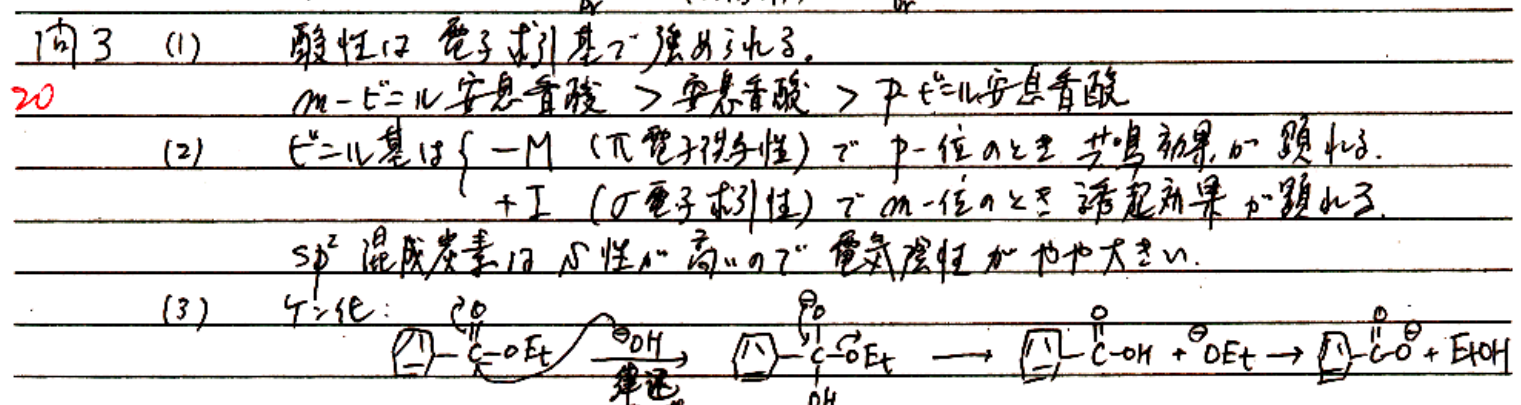 問3 (1) 酸性は電子求引基で強められる。
20 m-ビニル安息香酸 > 安息香酸 > p-ビニル安息香酸
(2) ビニル基は { -M (π電子供与性) で p-位のとき 共鳴効果が顕れる.
+I (σ電子求引性) で m-位のとき 誘起効果が顕れる.
sp² 混成炭素は s性が高いので 電気陰性がやや大きい.
(3) ケン化:
O ⊖O O O
C-OEt ⊖OH C-OEt → C-OH + ⊖OEt → C-O⊖ + EtOH
律速 OH